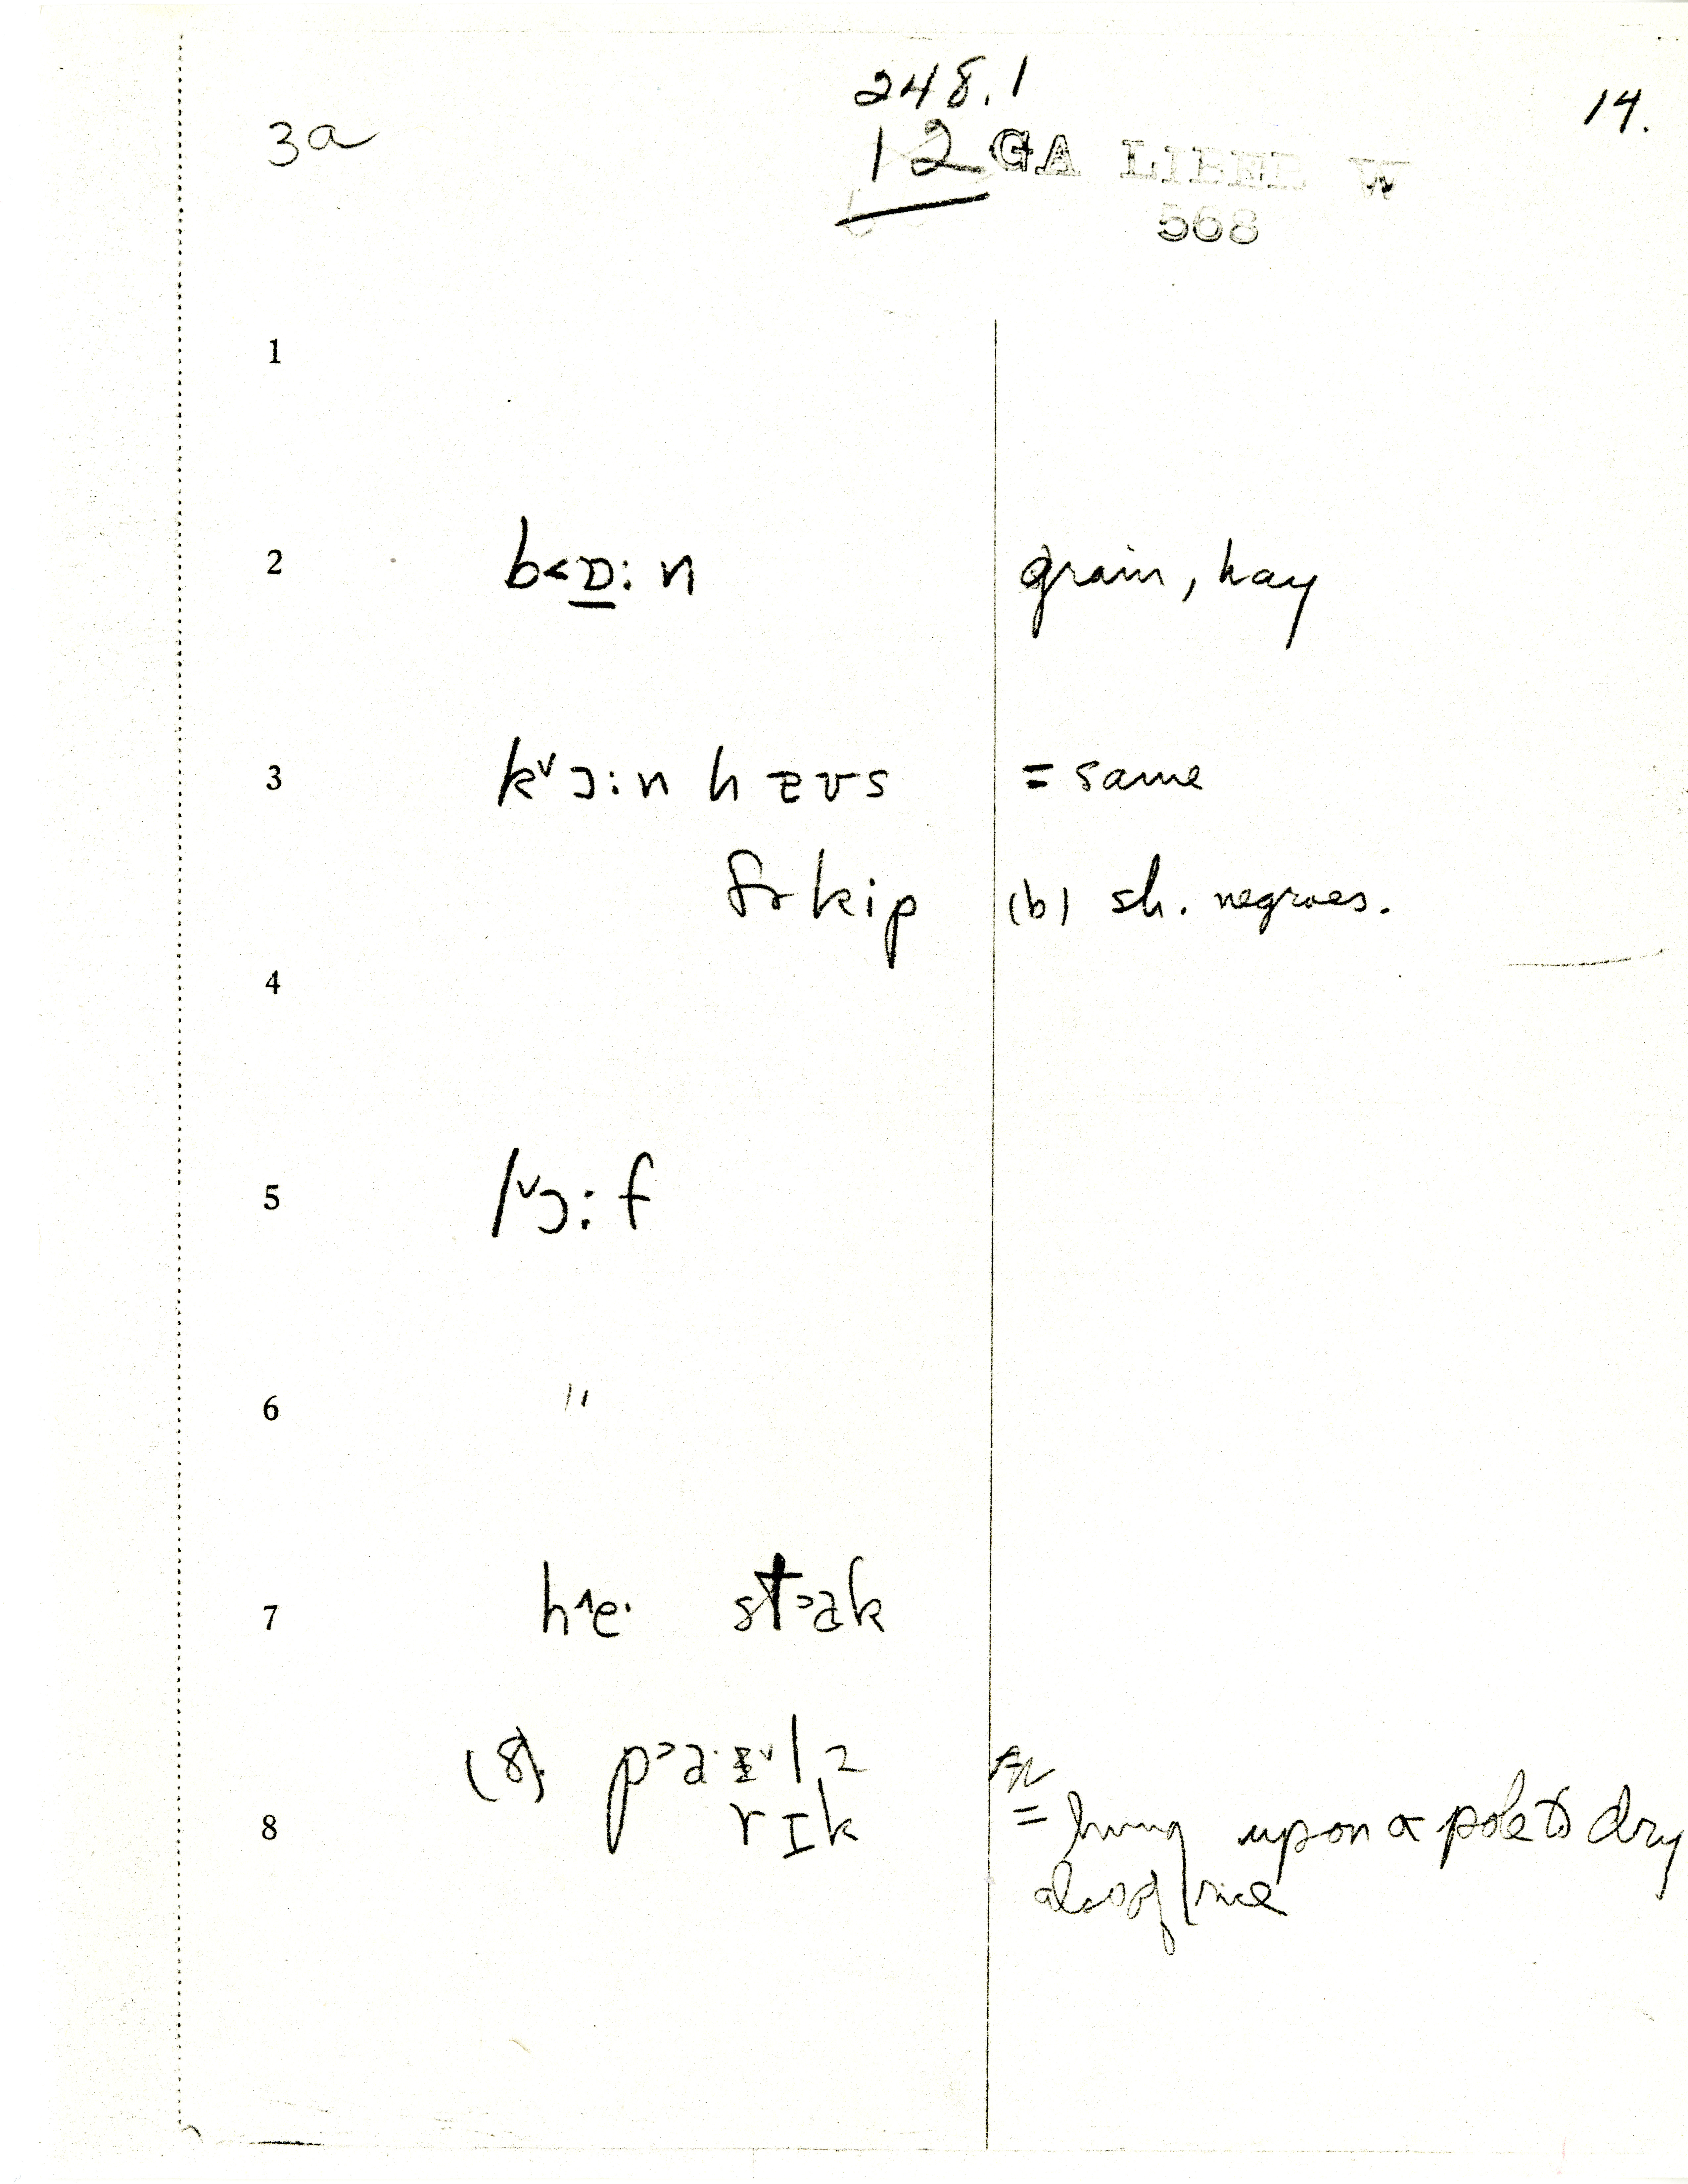 248.1
14.
3a
12 GA LIBER W
568
1
2 b<ɒ̲:n grain, hay
3 kᵛɔ:n hᴢʊs = same
fɚ kip (b) sh. negroes.
4
5 lᵛɔ:f
6 "
7 h^e· st>ak
(8) p>a·ɪᵛl,2
rɪk
8 = hung upon a pole to dry
also of rice